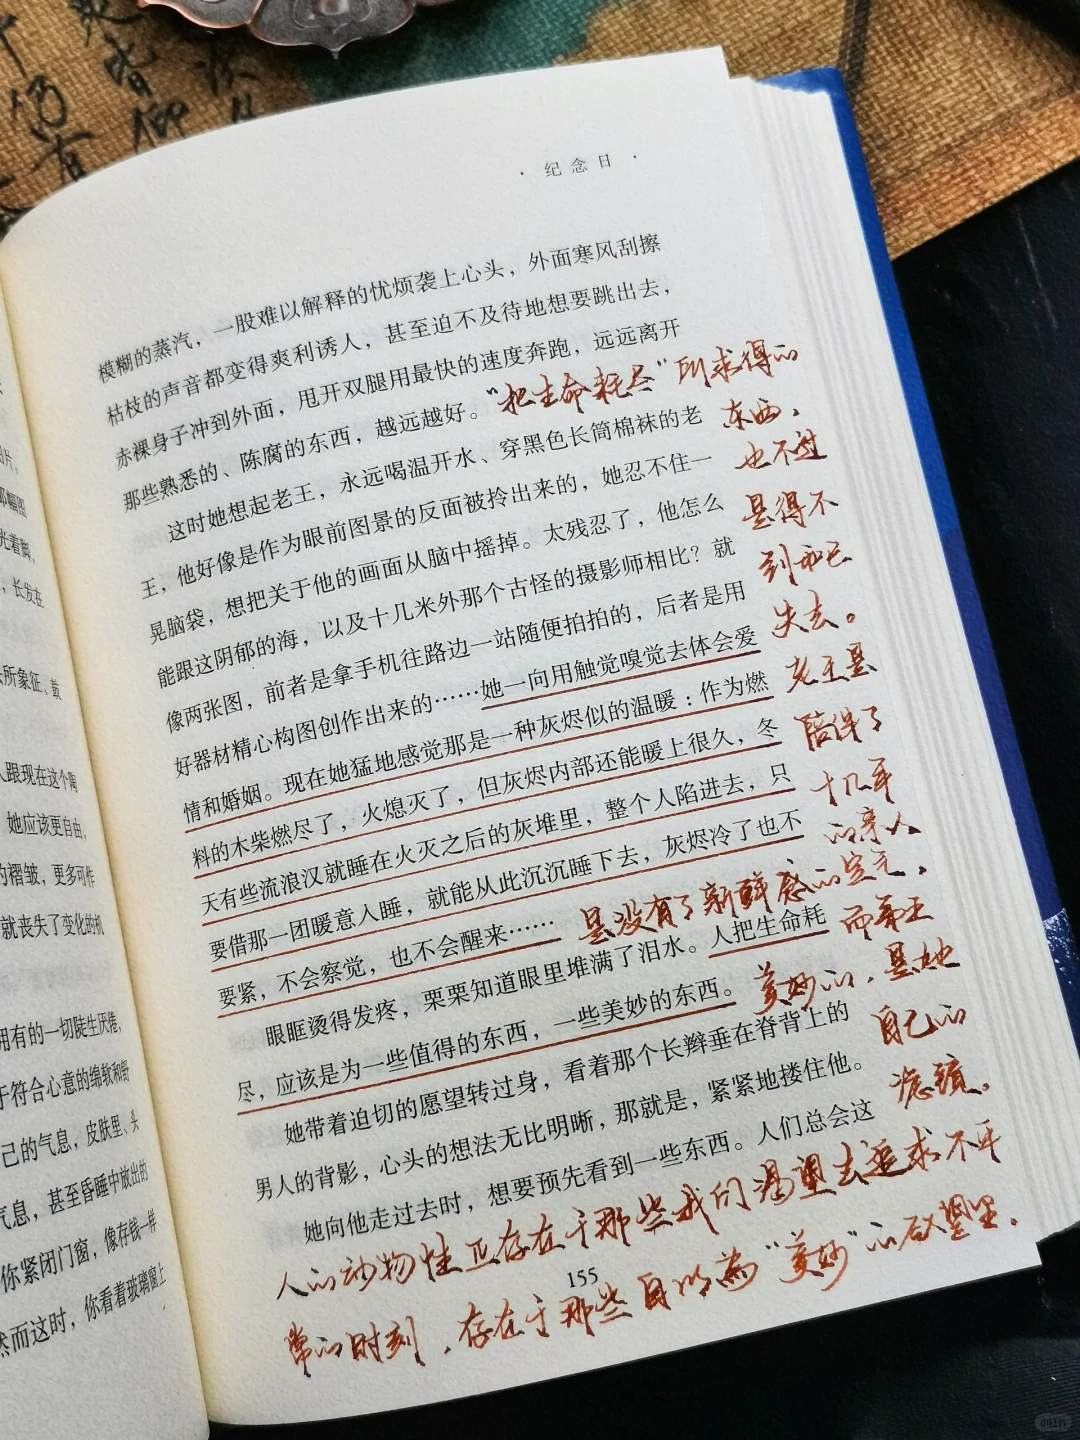 ·纪念日·
模糊的蒸汽，一股难以解释的忧烦袭上心头，外面寒风刮擦
枯枝的声音都变得爽利诱人，甚至迫不及待地想要跳出去，
赤裸身子冲到外面，甩开双腿用最快的速度奔跑，远远离开
那些熟悉的、陈腐的东西，越远越好。
这时她想起老王，永远喝温开水、穿黑色长筒棉袜的老
王，他好像是作为眼前图景的反面被拎出来的，她忍不住一
晃脑袋，想把关于他的画面从脑中摇掉。太残忍了，他怎么
能跟这阴郁的海，以及十几米外那个古怪的摄影师相比？就
像两张图，前者是拿手机往路边一站随便拍拍的，后者是用
好器材精心构图创作出来的……她一向用触觉嗅觉去体会爱
情和婚姻。现在她猛地感觉那是一种灰烬似的温暖：作为燃
料的木柴燃尽了，火熄灭了，但灰烬内部还能暖上很久，冬
天有些流浪汉就睡在火灭之后的灰堆里，整个人陷进去，只
要借那一团暖意入睡，就能从此沉沉睡下去，灰烬冷了也不
要紧，不会察觉，也不会醒来……
眼眶烫得发疼，栗栗知道眼里堆满了泪水。人把生命耗
尽，应该是为一些值得的东西，一些美妙的东西。
她带着迫切的愿望转过身，看着那个长辫垂在脊背上的
男人的背影，心头的想法无比明晰，那就是，紧紧地搂住他。
她向他走过去时，想要预先看到一些东西。人们总会这
155
“把生命耗尽”所求得的
东西，
也不过
是得不
到和已
失去。
老王是
陪伴了
十几年
的亲人
是没有了新鲜感的定元，
而弟王
美妙的，是她
自己的
滤镜。
人的动物性正存在于那些我们渴望去追求不平
常的时刻，存在于那些自以为“美妙”的欲望里，
图片。
那幅图
光着脚，
，长发在
然所象征、鼓
人跟现在这个陶
她应该更自由，
的褶皱，更多可作
就丧失了变化的机
拥有的一切陡生厌倦，
于符合心意的绵软和舒
己的气息，皮肤里、头
气息，甚至昏睡中放出的
你紧闭门窗，像存钱一样
然而这时，你看着玻璃窗上